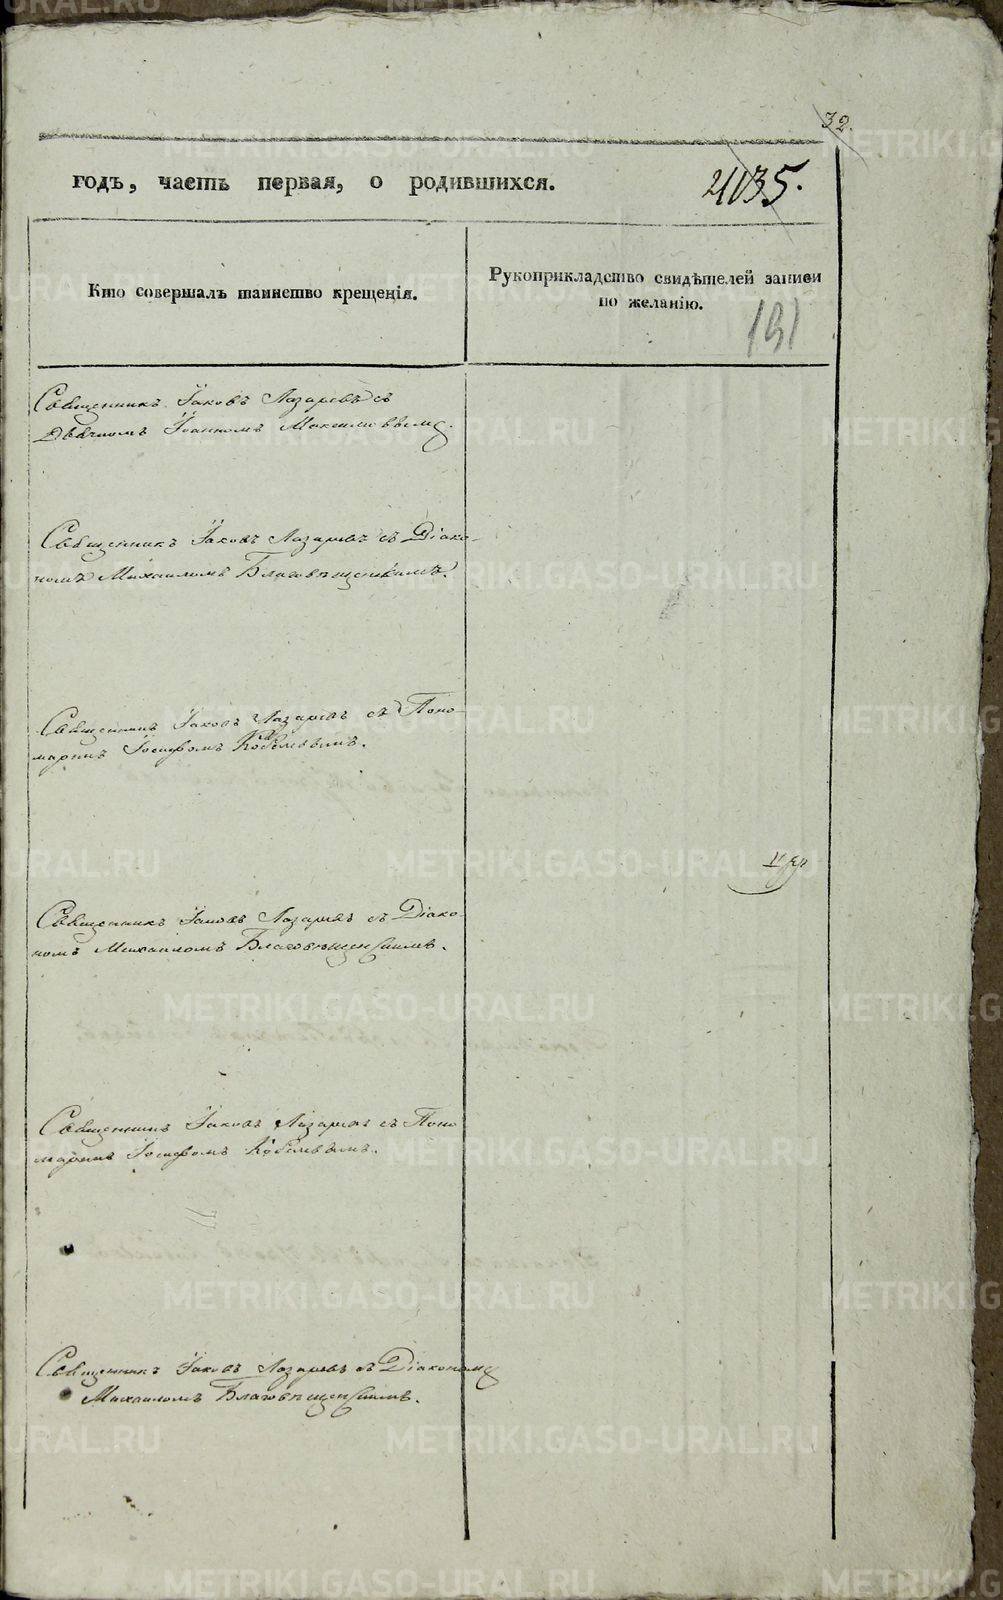 32.
годъ, часть первая, о родившихся.
Кто совершалъ таинство крещенія.
Рукоприкладство свидѣтелей записи
по желанію.
191
Священникъ Іаковъ Лазаревъ съ
Дьячкомъ Іоанномъ Максимовымъ.
Священникъ Іаковъ Лазаревъ съ Діако-
номъ Михаиломъ Благовѣщенскимъ.
Священникъ Іаковъ Лазаревъ съ Поно-
маремъ Іосифомъ
Священникъ Іаковъ Лазаревъ съ Діако-
номъ Михаиломъ Благовѣщенскимъ.
Священникъ Іаковъ Лазаревъ съ Поно
маремъ Іосифомъ
Священникъ Іаковъ Лазаревъ съ Діакономъ
Михаиломъ Благовѣщенскимъ.
METRIKI.GASO-URAL.RU